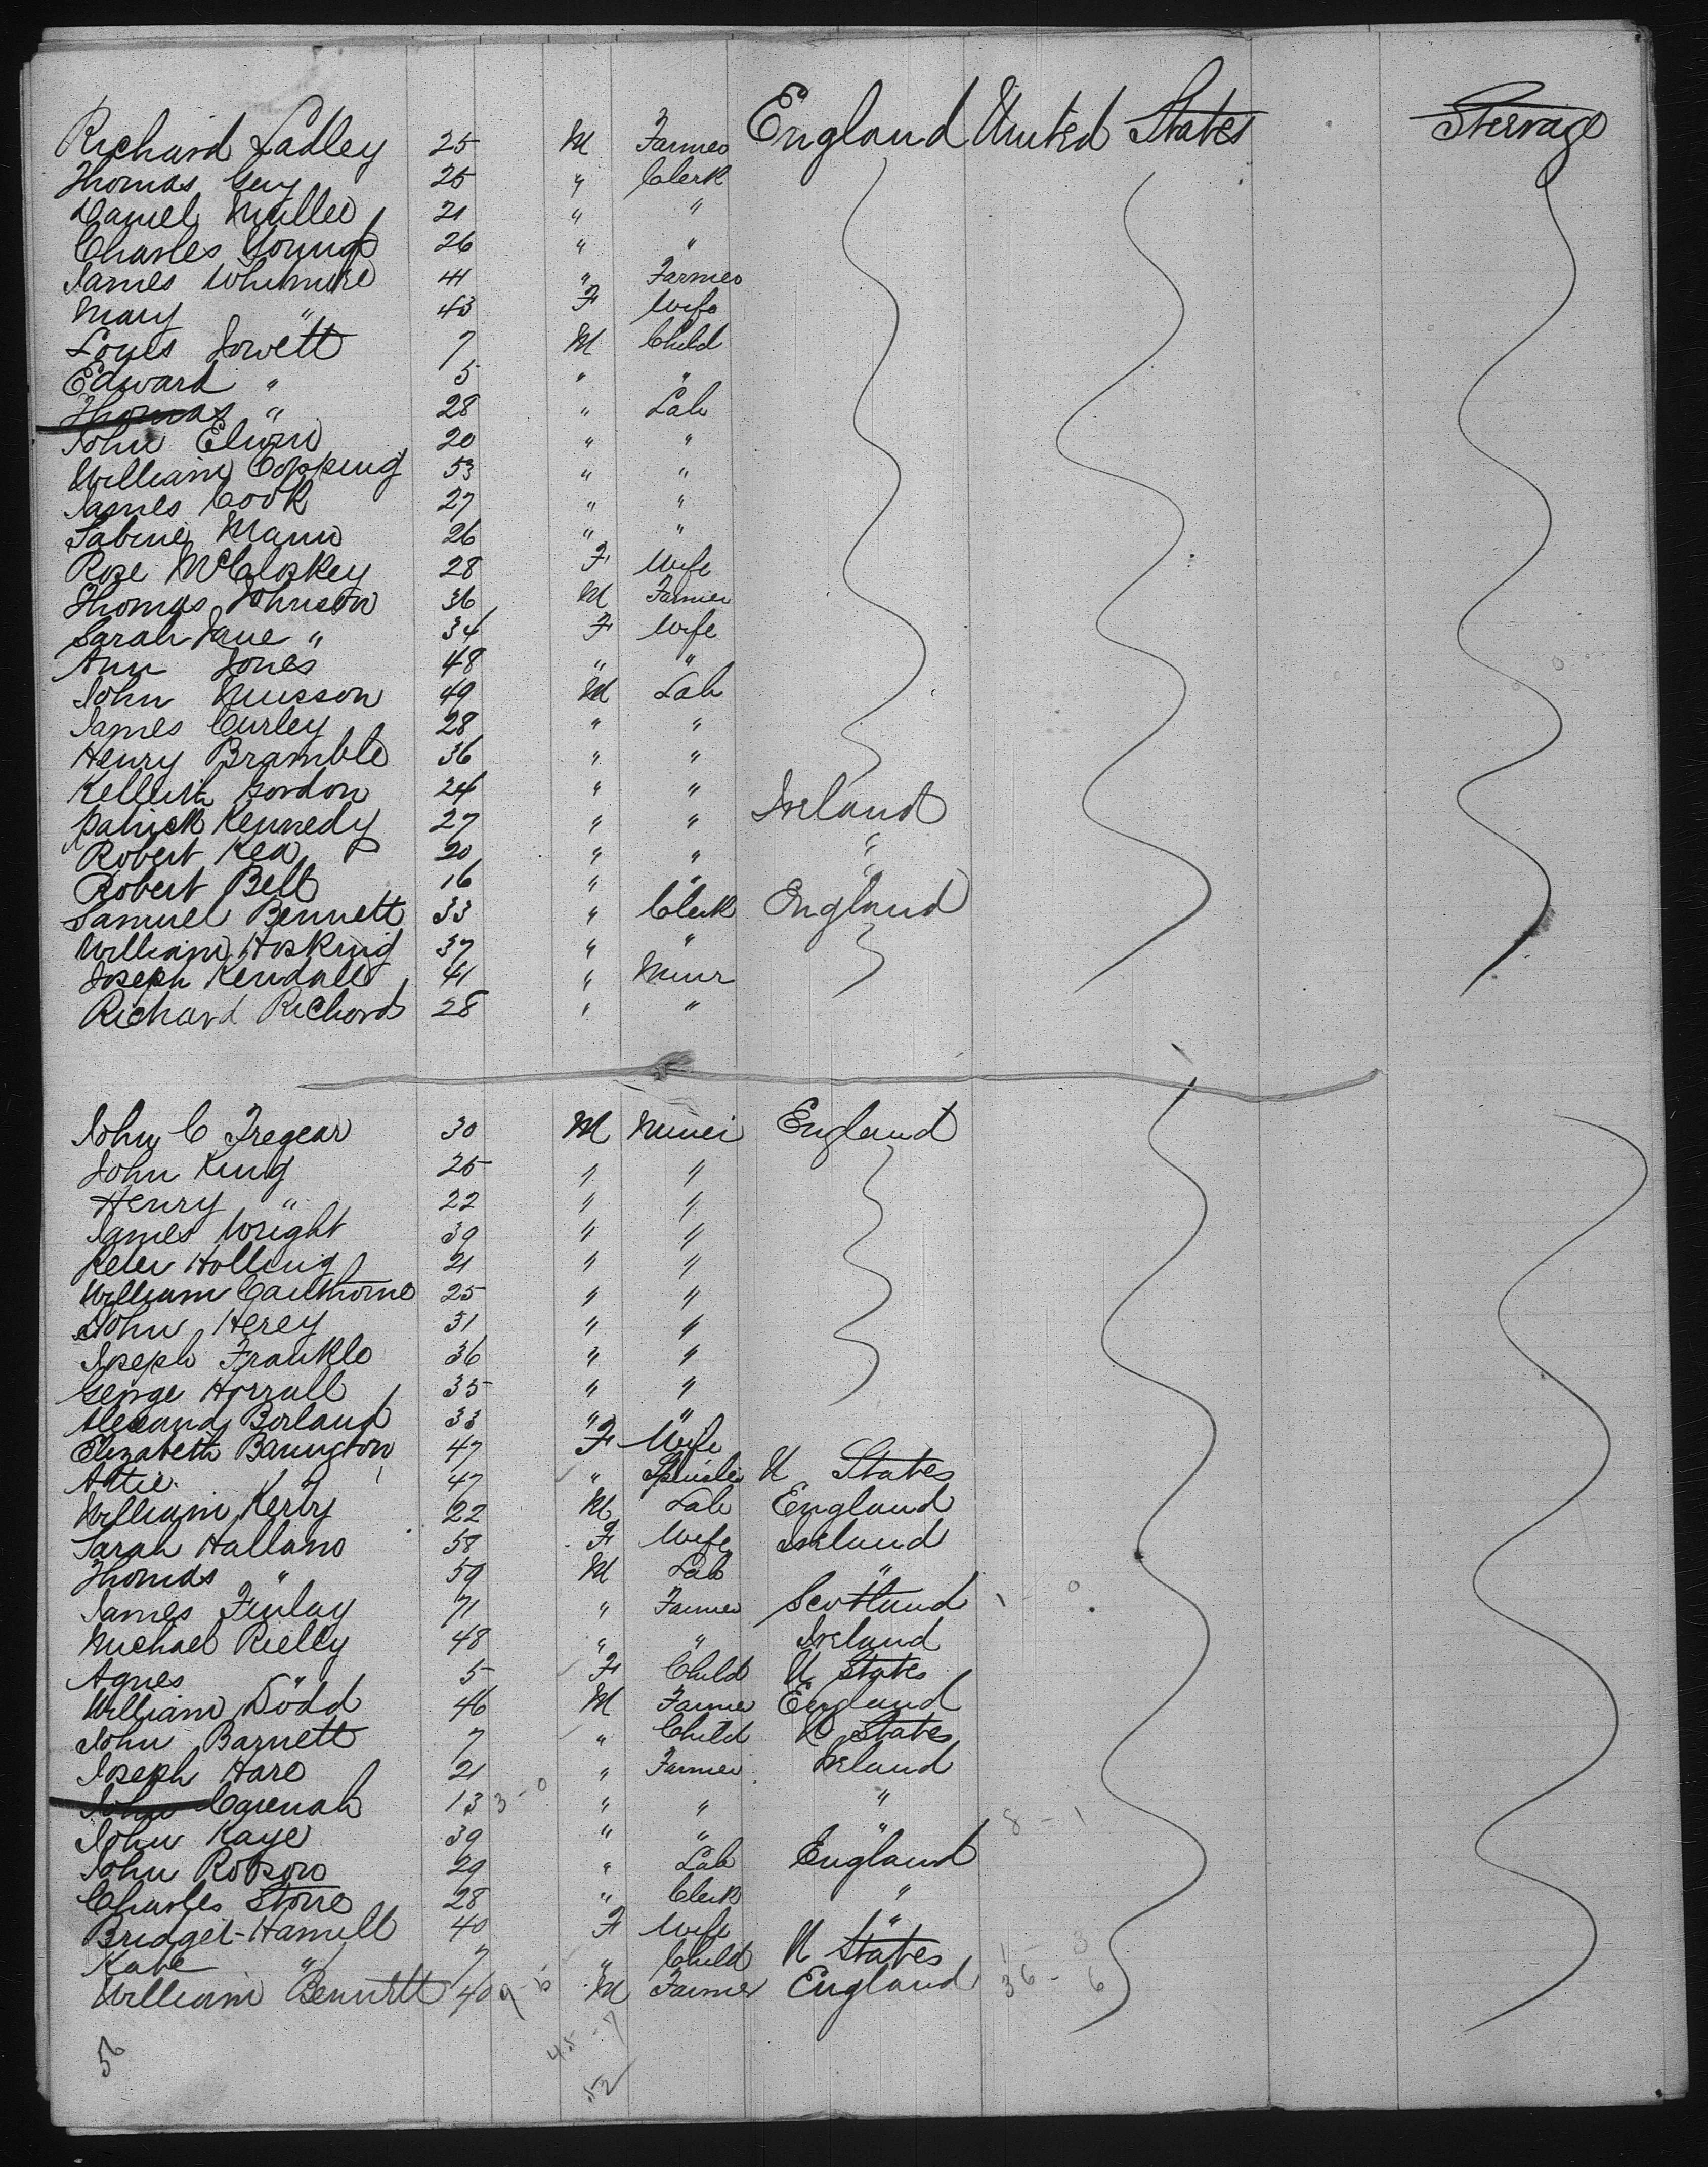 Richard Ladley 25 M Farmer England United States Steerage
Thomas Guy 25 " Clerk
Daniel Muller 21 " "
Charles Young 26 " "
James Whitmire 41 " Farmer
Mary " 43 F Wife
Louis Jowett 7 M Child
Edward " 5 " "
Thomas " 28 " Lab
John Elwin 20 " "
William Copping 53 " "
James Cook 27 " "
Sabine Mann 26 " "
Rose McCloskey 28 F Wife
Thomas Johnson 36 M Farmer
Sarah Jane " 34 F Wife
Ann Jones 48 " "
John Musson 49 M Lab
James Curley 28 " "
Henry Bramble 36 " "
Gordon 24 " " Ireland
Patrick Kennedy 27 " "
Robert Rea 20 " " "
Robert Bell 16 " "
Samuel Bennett 33 " Clerk England
William Hosking 37 " "
Joseph Kendall 41 " Minr
Richard Richord 28 " "
John C Tregear 30 M Miner England
John King 25 " "
Henry " 22 " "
James Wright 39 " "
Peter Holling 21 " "
William Cawthorne 25 " "
John Herey 31 " "
Joseph Frankle 36 " "
George Horrall 35 " "
Alexand Borland 33 " "
Elizabeth Barrington 47 F Wife
Attie " 47 " Spinster U States
William Kerby 22 M Lab England
Sarah Hallam 58 F Wife Ireland
Thomas " 59 M Lab "
James Finlay 71 " Farmer Scotland 1 - 0
Michael Rielly 48 " " Ireland
Agnes " 5 F Child U States
William Dodd 46 M Farmer England
John Barnett 7 " Child U States
Joseph Hare 21 " Farmer Ireland
John Cavenah 13 3-0 " " "
John Kaye 39 " " " 8 - 1
John Robson 29 " Lab England
Charles Stone 28 " Clerk "
Bridget Hamill 40 F Wife "
Kate " 7 " Child U States 1 - 3
William Bennett 40 9-6 M Farmer England 36 - 6
56 45 - 7
52